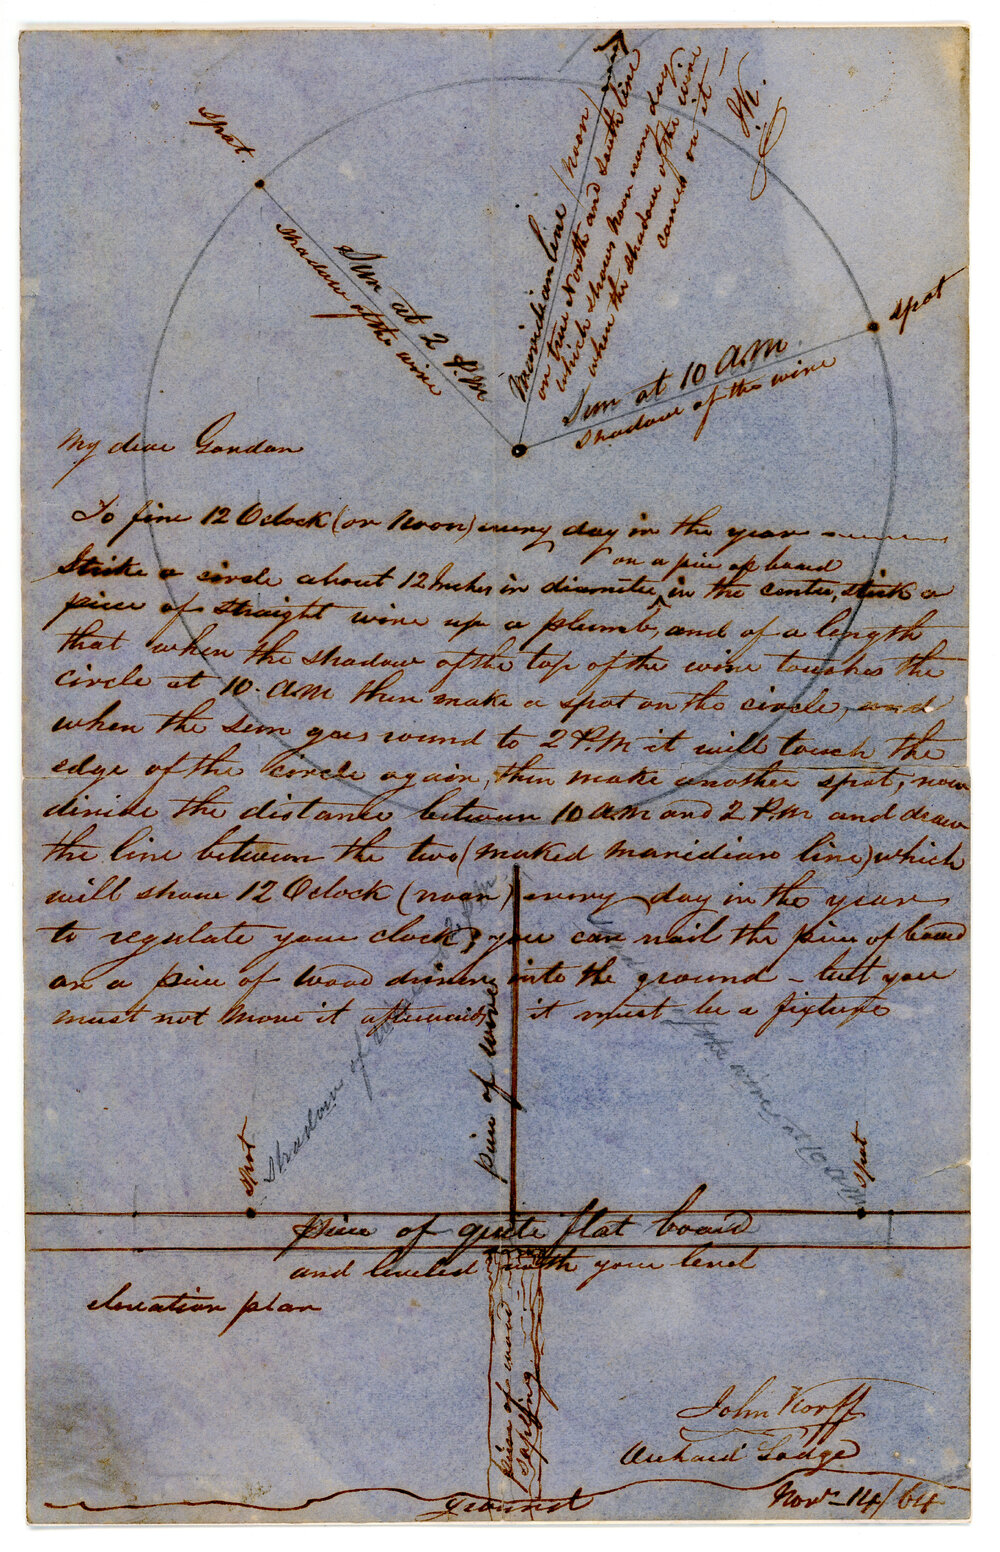 spot.
Sun at 2 P.M
shadow of the wire
Meridian line / Noon /
on true North and South line
which shows Noon every day
when the shadow of the wire
comes on it —
J.K.
spot
Sun at 10 a.m.
shadow of the wire
My dear Gordon
To fine 12 Oclock (or Noon) every day in the year
on a piece of board
Strike a circle about 12 Inches in diameter, in the centre, stick a
piece of straight wire up a plumb, and of a length
that when the shadow of the top of the wire touches the
circle at 10. a.m then make a spot on the circle, and
when the sun goes round to 2 P.M it will touch the
edge of the circle again, then make another spot, now
divide the distance between 10 a.m and 2 P.M and draw
the line between the two (maked maridian line) which
will show 12 Oclock (noon) every day in the year
to regulate your clock, you can nail the piece of board
on a piece of wood driven into the ground - but you
must not move it afterwards, it must be a fixture
shadow of
of the wire at 10 a.m
piece of wire
spot
spot
piece of quite flat board
and leveled with your level
elevation plan
piece of wood
sapling
John Korff
Orchard Lodge
ground
Novr 14/64